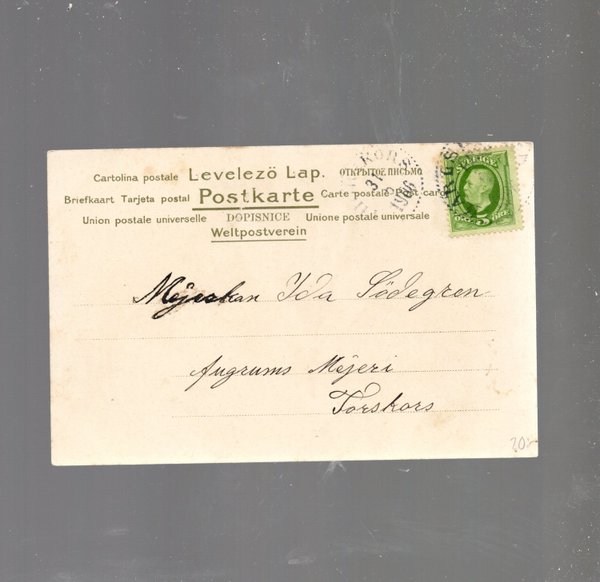 Cartolina postale Levelező Lap. ОТКРЫТОЕ ПИСЬМО
Briefkaart Tarjeta postal Postkarte Carte postale Post card
Union postale universelle DOPISNICE Unione postale universale
Weltpostverein
KORS
31
1906
SVERIGE
5 ÖRE
Mejeskan Ida Södegren
Augrums Mejeri
Torskors
20:-